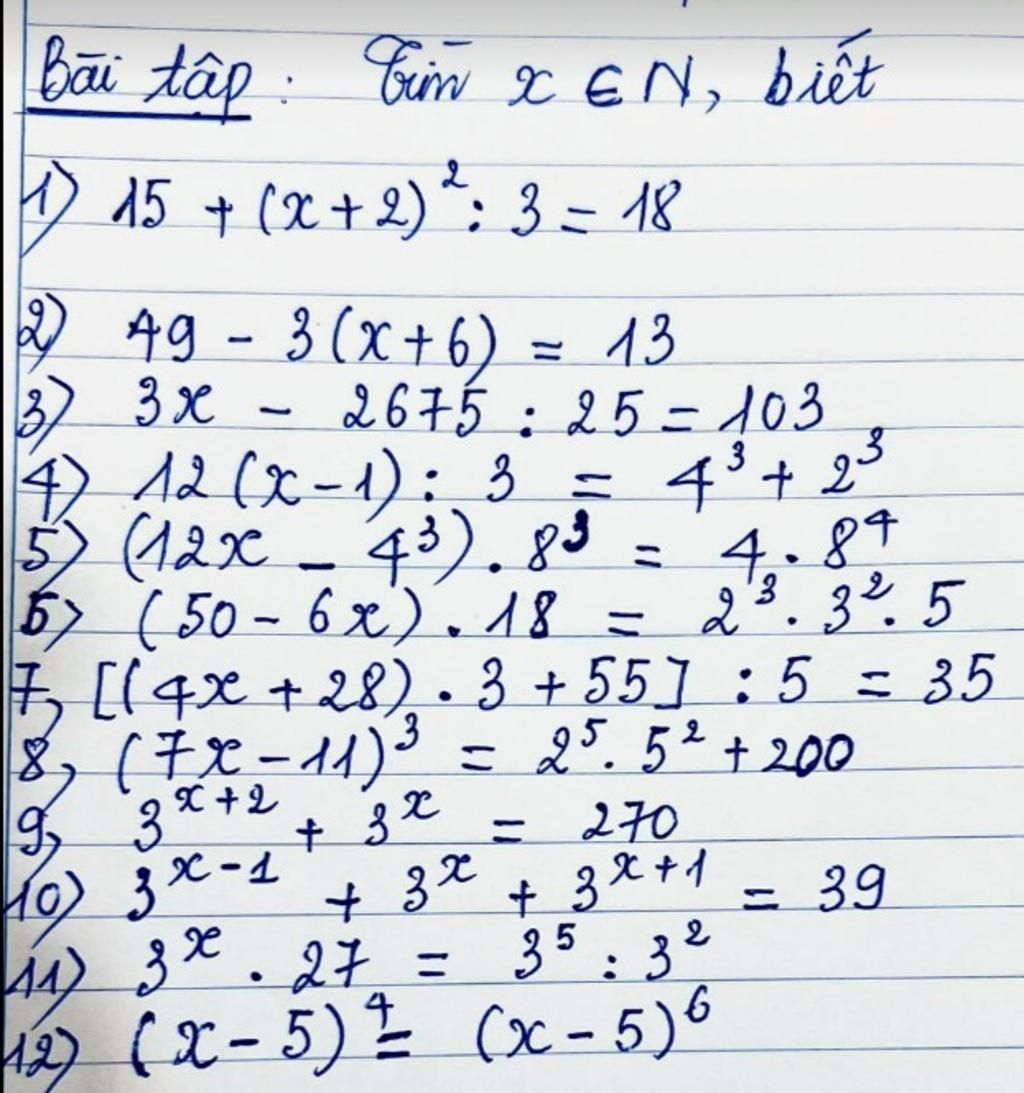 Bài tập : Tìm x ∈ N, biết
1) 15 + (x + 2)² : 3 = 18
2) 49 - 3(x + 6) = 13
3) 3x - 2675 : 25 = 103
4) 12(x - 1) : 3 = 4³ + 2³
5) (12x - 4³) . 8³ = 4 . 8⁴
6) (50 - 6x) . 18 = 2³ . 3² . 5
7, [(4x + 28) . 3 + 55] : 5 = 35
8, (7x - 11)³ = 2⁵ . 5² + 200
9, 3ˣ⁺² + 3ˣ = 270
10) 3ˣ⁻¹ + 3ˣ + 3ˣ⁺¹ = 39
11) 3ˣ . 27 = 3⁵ : 3²
12) (x - 5)⁴ = (x - 5)⁶